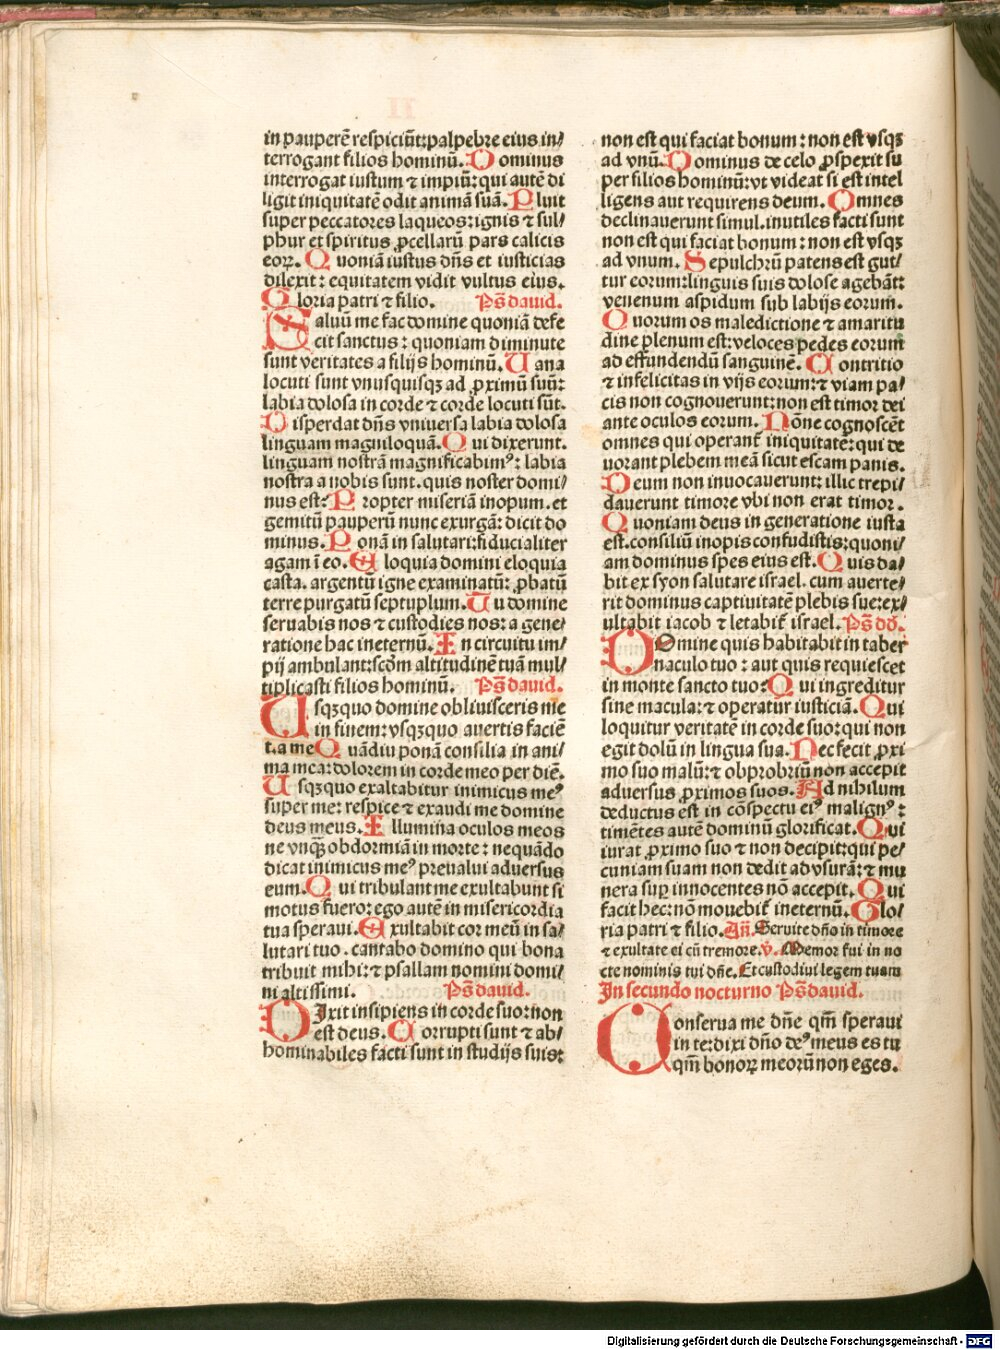 in pauperē respiciūt:palpebre eius in/
terrogant filios hominū. Dominus
interrogat iustum ⁊ impiū: qui autē di
ligit iniquitatē odit animā suā. Pluit
super peccatores laqueos: ignis ⁊ sul/
phur et spiritus ꝓcellarū pars calicis
eoꝝ. Quoniā iustus dn̄s et iusticias
dilexit: equitatem vidit vultus eius.
Gloria patri ⁊ filio. Ps̄ dauid.
Saluū me fac domine quoniā defe
cit sanctus: quoniam diminute
sunt veritates a filijs hominū. Uana
locuti sunt vnusquisqꝫ ad ꝓximū suū:
labia dolosa in corde ⁊ corde locuti sūt.
Disperdat dn̄s vniuersa labia dolosa
linguam magniloquā. Qui dixerunt.
linguam nostrā magnificabimꝰ: labia
nostra a nobis sunt. quis noster domi/
nus est? Propter miseriā inopum. et
gemitū pauperū nunc exurgā: dicit do
minus. Ponā in salutari: fiducialiter
agam ī eo. Eloquia domini eloquia
casta. argentū igne examinatū: ꝓbatū
terre purgatū septuplum. Tu domine
seruabis nos ⁊ custodies nos: a gene/
ratione hac ineternū. In circuitu im/
pij ambulant: scd̄m altitudinē tuā mul/
tiplicasti filios hominū. Ps̄ dauid.
Usqꝫquo domine obliuisceris me
in finem: vsqꝫquo auertis faciē
t. a me Quādiu ponā consilia in ani/
ma mea: dolorem in corde meo per diē.
Usqꝫquo exaltabitur inimicus meꝰ
super me: respice ⁊ exaudi me domine
deus meus. Illumina oculos meos
ne vnqꝫ̄ obdormiā in morte: nequādo
dicat inimicus meꝰ preualui aduersus
eum. Qui tribulant me exultabunt si
motus fuero: ego autē in misericordia
tua speraui. Exultabit cor meū in sa/
lutari tuo. cantabo domino qui bona
tribuit mihi: ⁊ psallam nomini domi/
ni altissimi. Ps̄ dauid.
Dixit insipiens in corde suo: non
est deus. Corrupti sunt ⁊ ab/
hominabiles facti sunt in studijs suis:
non est qui faciat bonum: non est vsqꝫ
ad vnū. Dominus de celo ꝓspexit su
per filios hominū: vt videat si est intel
ligens aut requirens deum. Omnes
declinauerunt simul. inutiles facti sunt
non est qui faciat bonum: non est vsqꝫ
ad vnum. Sepulchrū patens est gut/
tur eorum: linguis suis dolose agebāt:
venenum aspidum sub labijs eorum.
Quorum os maledictione ⁊ amaritu
dine plenum est: veloces pedes eorum
ad effundendū sanguinē. Contritio
⁊ infelicitas in vijs eorum: ⁊ viam pa/
cis non cognouerunt: non est timor dei
ante oculos eorum. Nōne cognoscēt
omnes qui operant̄ iniquitatē: qui de
uorant plebem meā sicut escam panis.
Deum non inuocauerunt: illic trepi/
dauerunt timore vbi non erat timor.
Quoniam deus in generatione iusta
est. consiliū inopis confudistis: quoni/
am dominus spes eius est. Quis da/
bit ex syon salutare israel. cum auerte/
rit dominus captiuitatē plebis sue: ex/
ultabit iacob ⁊ letabit̄ israel. Ps̄ dd̄.
Domine quis habitabit in taber
naculo tuo: aut quis requiescet
in monte sancto tuo: Qui ingreditur
sine macula: ⁊ operatur iusticiā. Qui
loquitur veritatē in corde suo: qui non
egit dolū in lingua sua. Nec fecit ꝓxi
mo suo malū: ⁊ obprobriū non accepit
aduersus ꝓximos suos. Ad nihilum
deductus est in cōspectu eiꝰ malignꝰ:
timētes autē dominū glorificat. Qui
iurat ꝓximo suo ⁊ non decipit: qui pe/
cuniam suam non dedit ad vsurā: ⁊ mu
nera sup̄ innocentes nō accepit. Qui
facit hec: nō mouebit̄ ineternū. Glo/
ria patri ⁊ filio. An̄. Seruite dn̄o in timore
⁊ exultate ei cū tremore. v̄. Memor fui in no
cte nominis tui dn̄e. Et custodiui legem tuam
In secundo nocturno Ps̄ dauid.
Conserua me dn̄e qm̄ speraui
in te: dixi dn̄o deꝰ meus es tu
qm̄ bonoꝝ meorū non eges.
Digitalisierung gefördert durch die Deutsche Forschungsgemeinschaft - DFG